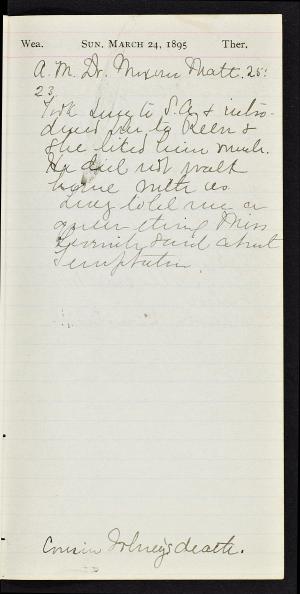 Wea. SUN. MARCH 24, 1895 Ther.
A. M. Dr. Matt. 25:
23
Took Lucy to S.A. & intro-
duced her to Keen &
She liked him much.
He did not walk
home with us
Lucy told me a
queer thing Miss
said about
Temptation
Cousin death.